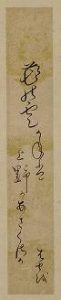 花の雲かねは
上野かあさくさか
はせを